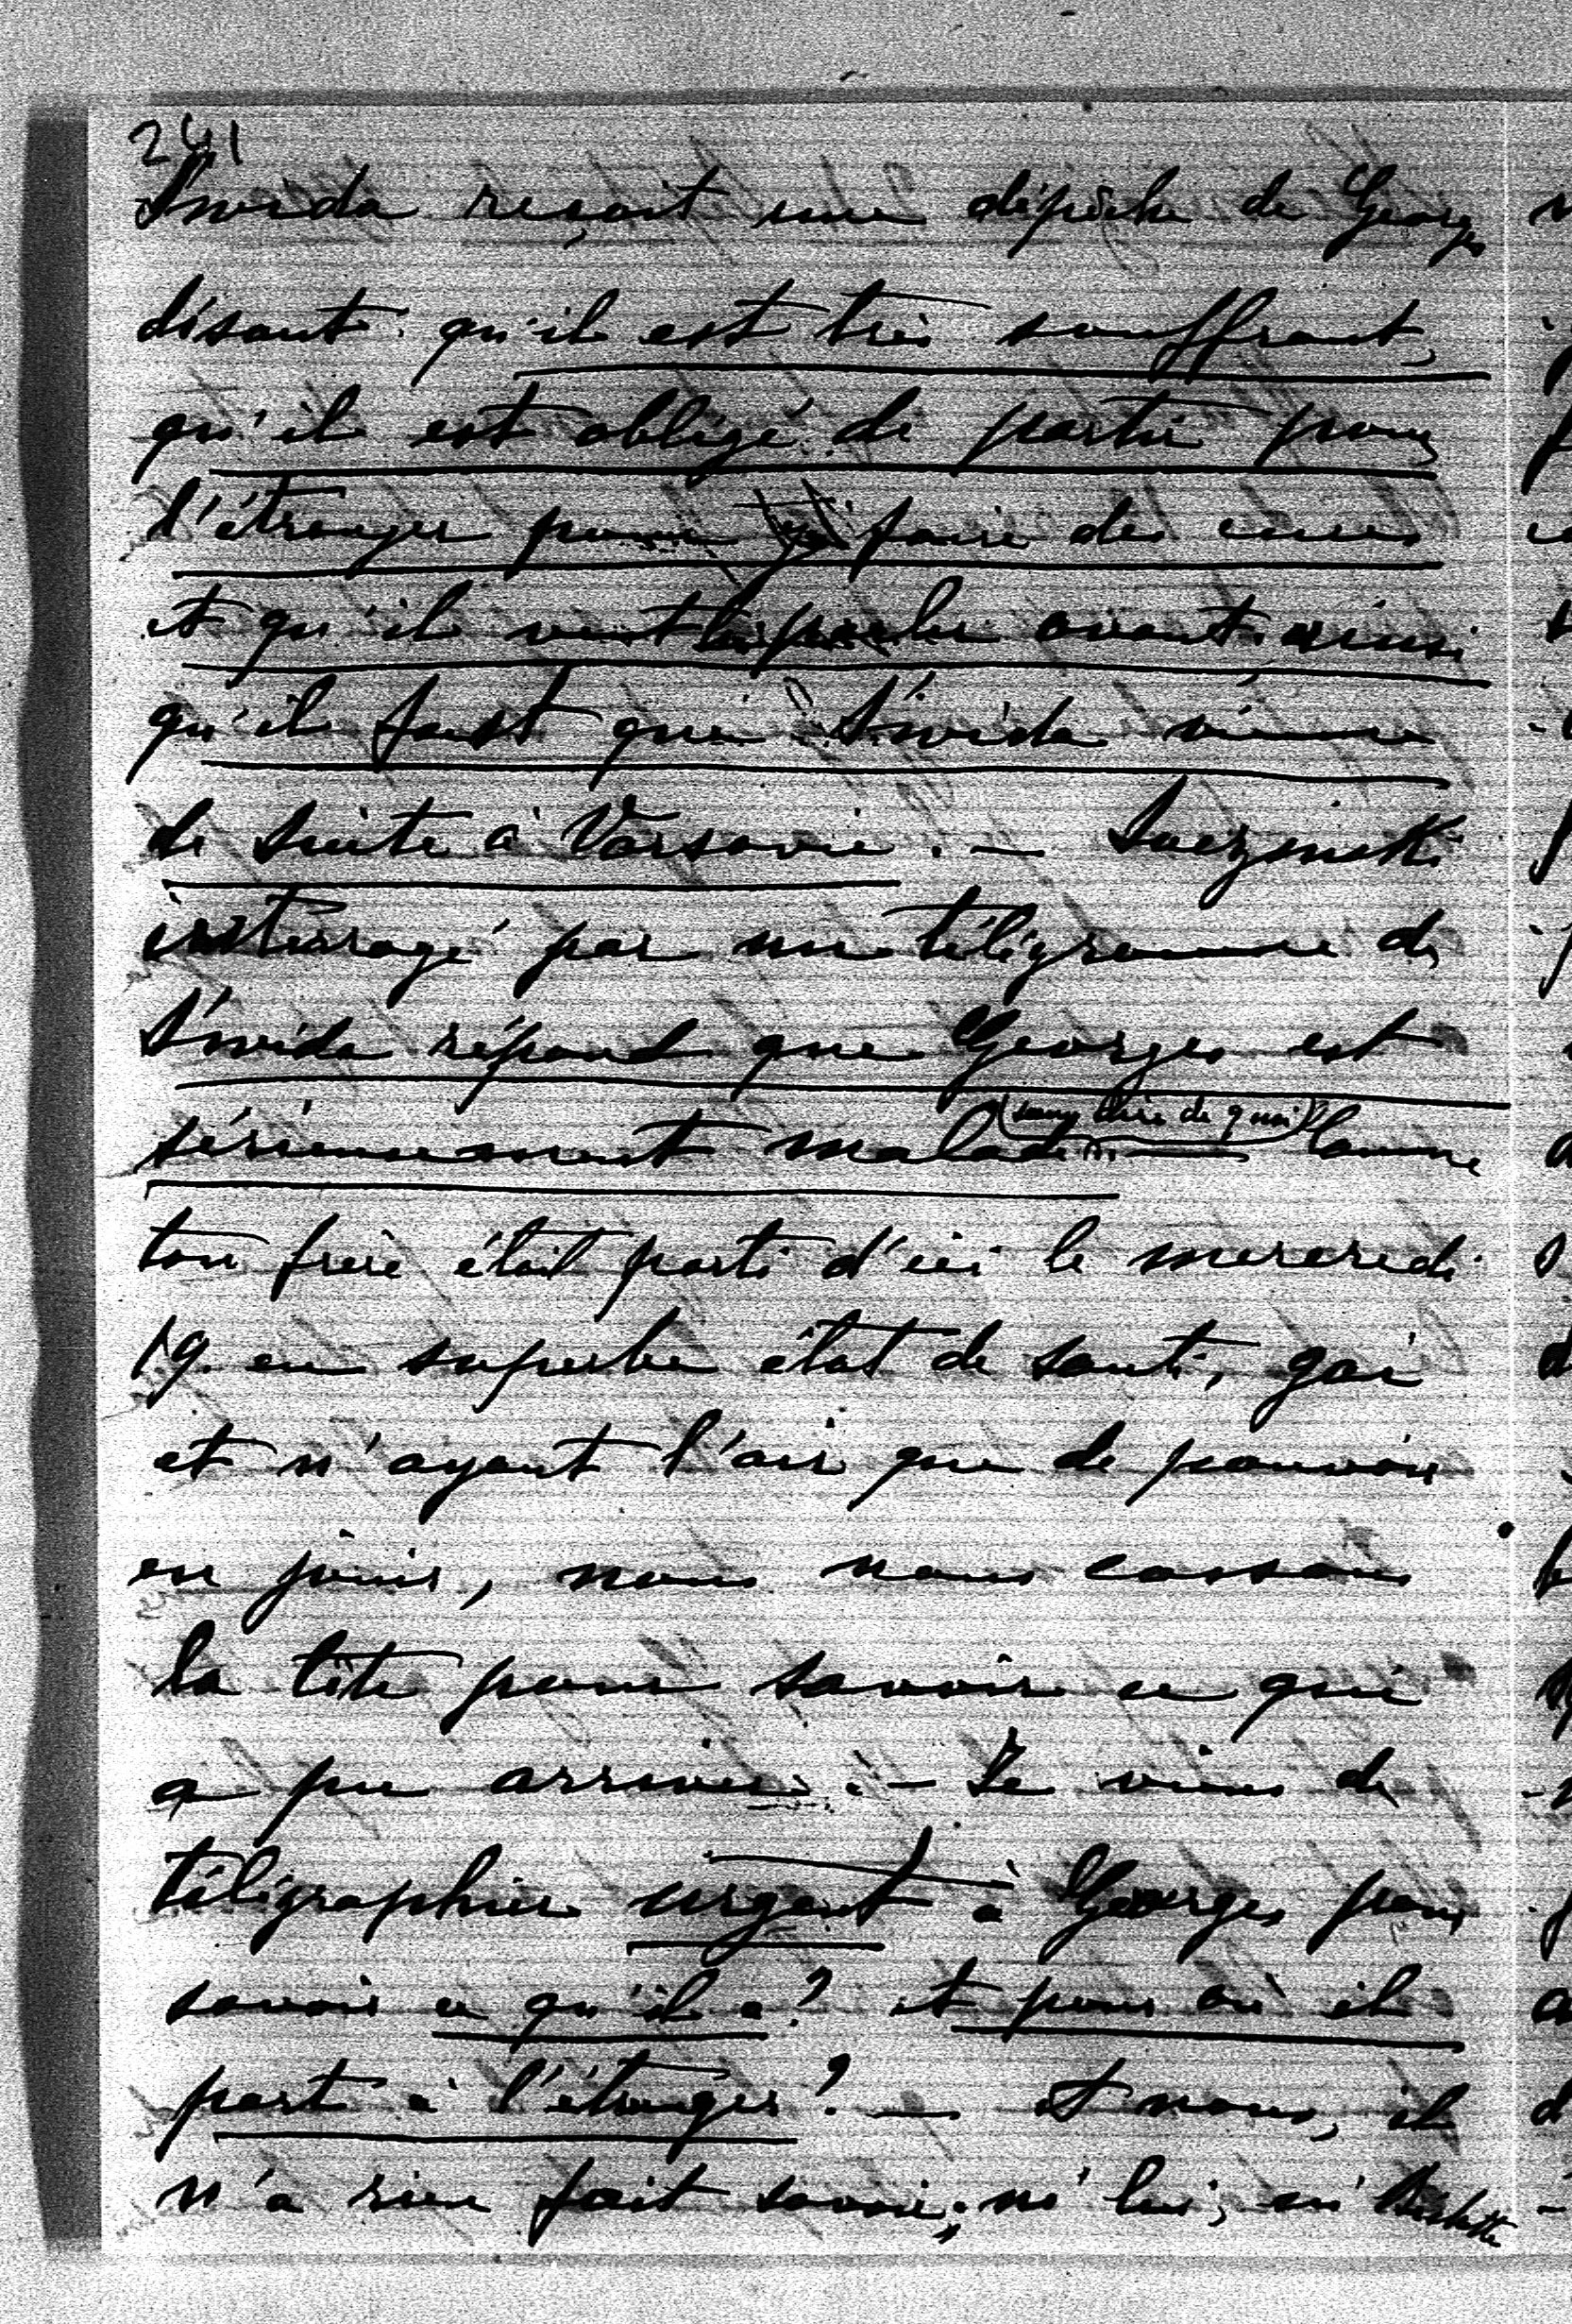 241
Swida reçoit une dépêche de Georges
disant qu'il est très souffrant,
qu'il est obligé de partir pour
l'étranger pour faire des cures
et qu'il veut lui parler avant, ainsi
qu'il faut que Swida vienne
de suite à Varsovie. —
interrogé par un télégramme de
Swida répond que Georges est
sérieusement malade (sans dire de quoi) — Comme
ton frère était parti d'ici le mercredi
19 en superbe état de santé, gai
et n'ayant l'air que de pouvoir
en jouir, nous nous cassons
la tête pour savoir ce qui
a pu arriver. — Je viens de
télégraphier urgent à Georges pour
savoir ce qu'il a? et pour où il
part à l'étranger? — Et nous, il
n'a rien fait savoir, ni lui, ni